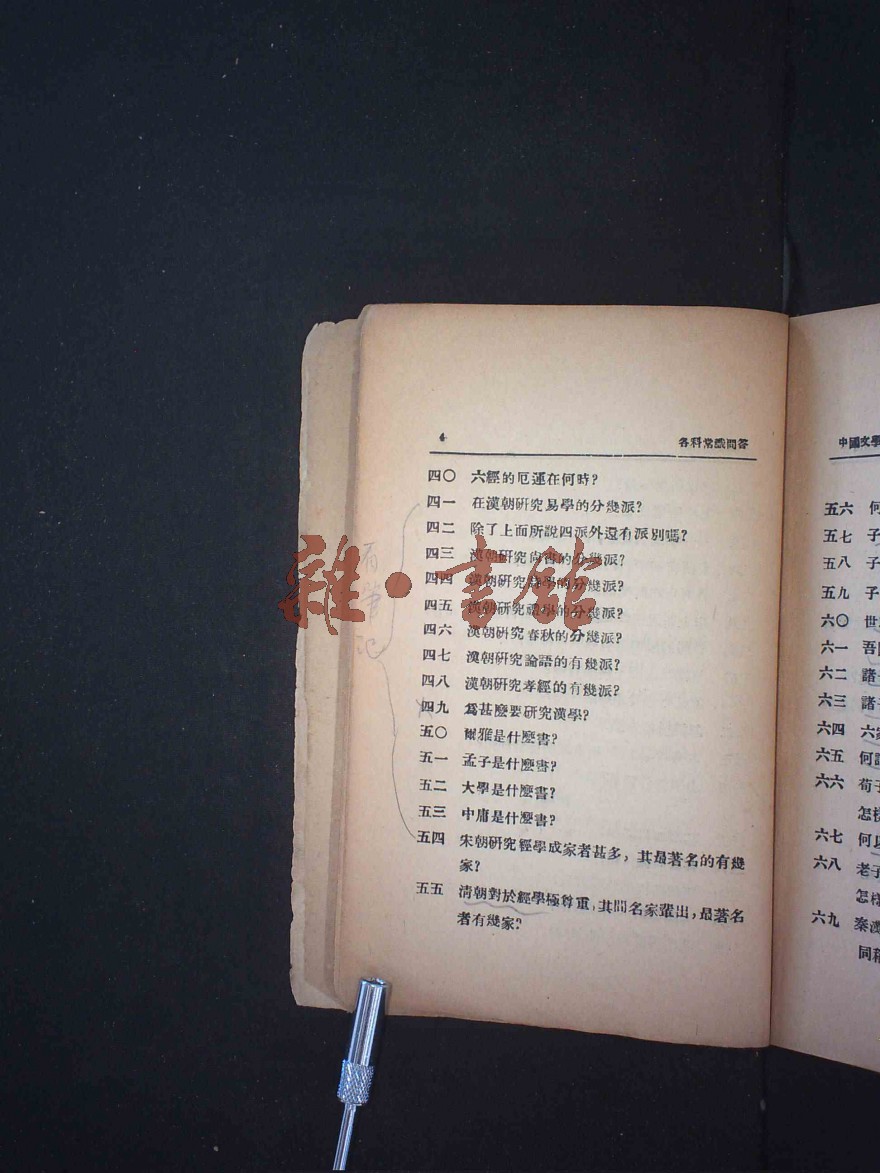 4 各科常識問答
四〇 六經的厄運在何時?
四一 在漢朝研究易學的分幾派?
四二 除了上面所說四派外還有派別嗎?
四三 漢朝研究尙書的分幾派?
四四 漢朝研究詩學的分幾派?
四五 漢朝研究禮學的分幾派?
四六 漢朝研究春秋的分幾派?
四七 漢朝研究論語的有幾派?
四八 漢朝研究孝經的有幾派?
四九 爲甚麼要研究漢學?
五〇 爾雅是什麼書?
五一 孟子是什麼書?
五二 大學是什麼書?
五三 中庸是什麼書?
五四 宋朝研究經學成家者甚多,其最著名的有幾
家?
五五 淸朝對於經學極尊重,其間名家輩出,最著名
者有幾家?
有筆記
雜·書館
中國文學
五六 何
五七 子
五八 子
五九 子
六〇 世
六一 吾
六二 諸
六三 諸
六四 六
六五 何
六六 荀子
怎樣
六七 何以
六八 老子
怎樣
六九 秦漢
同